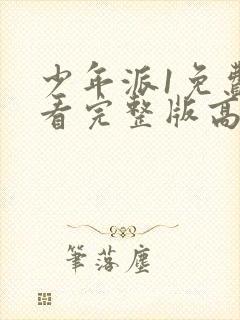 少年派1免费
看完整版高
筆落塵